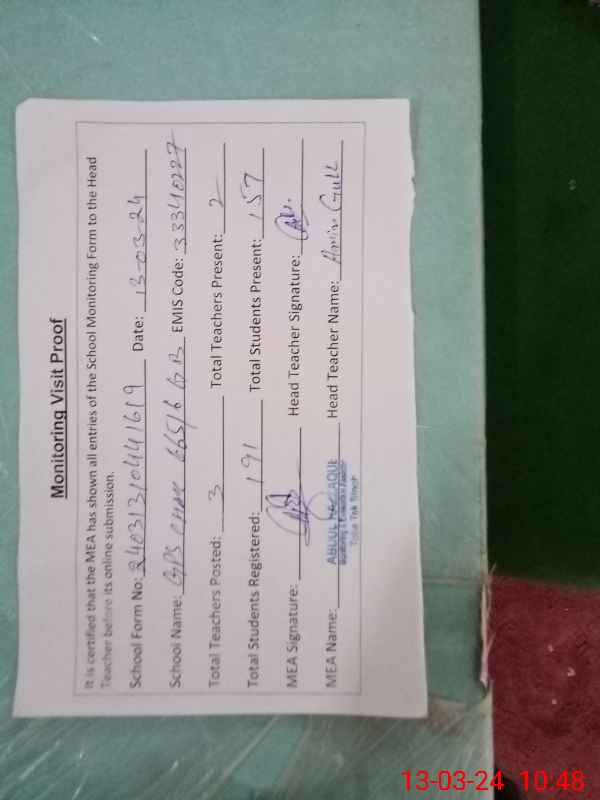 Monitoring Visit Proof
It is certified that the MEA has shown all entries of the School Monitoring Form to the Head
Teacher before its online submission.
School Form No: 240313104441619 Date: 13-03-24
School Name: GPS 665/6 GB EMIS Code: 33310227
Total Teachers Posted: 3 Total Teachers Present: 2
Total Students Registered: 191 Total Students Present: 157
MEA Signature: Head Teacher Signature:
MEA Name: ABDUL Head Teacher Name: Gull
Toba Tek Singh
13-03-24 10:48